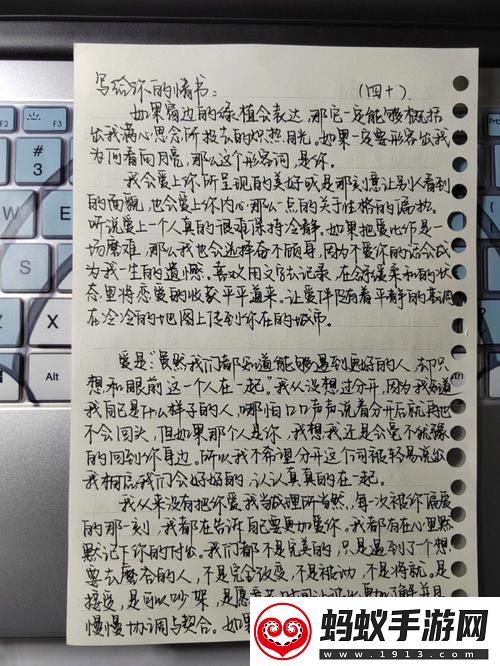 写给你的情书：（四十）
如果窗边的绿植会表达，那它一定能够概括
出我满心思念所投去的炽热目光。如果一定要形容出我
为何看向月亮，那么这个形容词，是你。
我会爱上你所呈现的美好或是那刻意让别人看到
的面貌，也会爱上你内心那么一点的关于性格的偏执。
听说爱上一个人真的很难保持冷静。如果把爱比作是一
场磨难，那么我也会选择奋不顾身，因为不爱你的话会成
为我一生的遗憾。喜欢用文字去记录，在舒缓柔和的状
态里将恋爱的收获平平道来。让爱伴随着平静的基调
在冷冷的地图上传到你在的城市。
爱是："虽然我们都知道能够遇到更好的人，却只
想和眼前这一个人在一起。"我从没想过分开，因为我知道
我自己是什么样子的人，哪怕口口声声说着分开后就再也
不会回头，但如果那个人是你，我想我还是会毫不犹豫
的回到你身边。所以我不希望分开这个词被轻易说出
我相信我们会好好的，认认真真的在一起。
我从来没有把你爱我当成理所当然，每一次被你偏爱
的那一刻，我都在告诉自己要更加爱你。我都有在心里默
默记下你的付出。我们都不是完美的，只是遇到了个想
要去磨合的人，不是完全改变，不是被动，不是将就。是
接受，是可以吵架，是愿意花时间让彼此更加了解并且
慢慢协调与契合。如果
# 3
F2
F3
Alt
Ctrl
蚂蚁手游网
www.1913.com